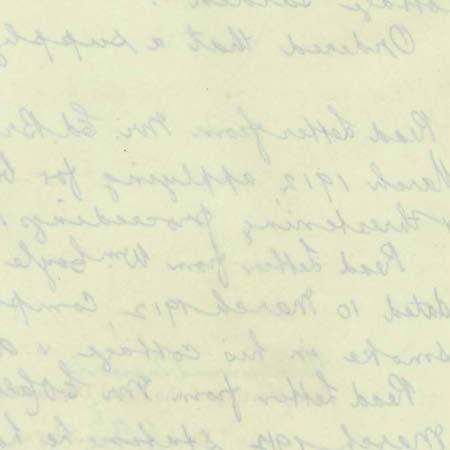 Ordered that a supply
Read letter from Mr. Ed. Br
March 1912 applying for
threatening proceedings
Read letter from Wm Coyle
dated 10 March 1912 comp
smoke in his cottage &
Read letter from Mr
March 1912 stating he